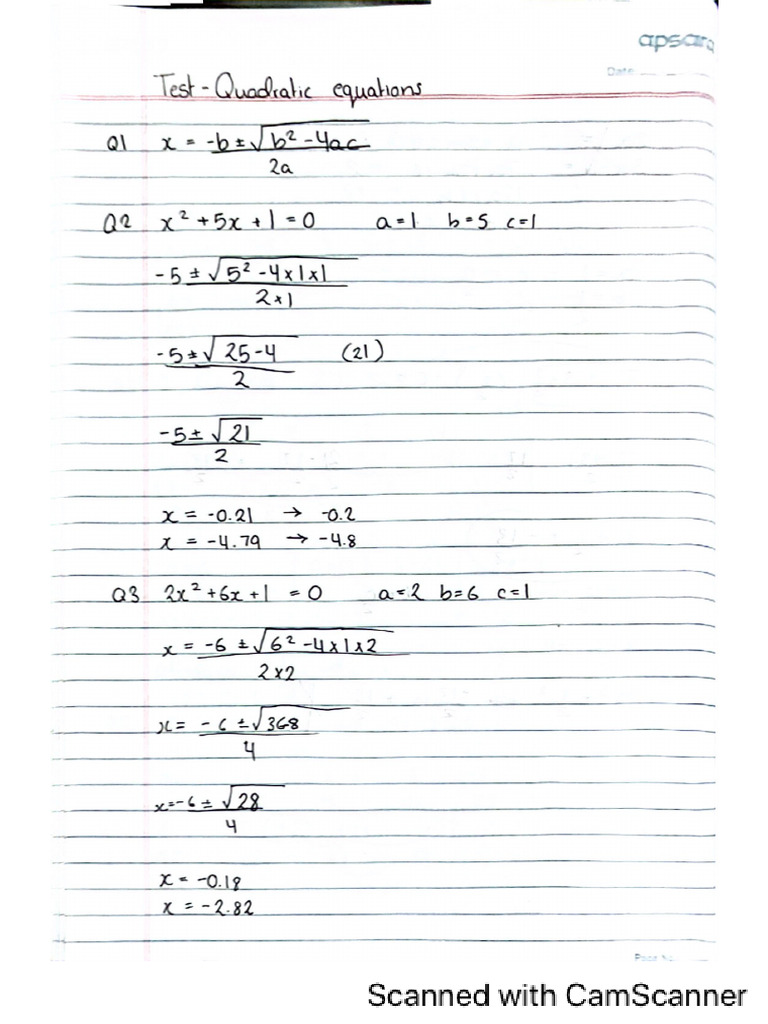 apsara
Date
Test - Quadratic equations
Q1 x = -b ± √b² - 4ac
2a
Q2 x² + 5x + 1 = 0 a = 1 b = 5 c = 1
-5 ± √5² - 4 x 1 x 1
2 x 1
-5 ± √25 - 4 (21)
2
-5 ± √21
2
x = -0.21 → -0.2
x = -4.79 → -4.8
Q3 2x² + 6x + 1 = 0 a = 2 b = 6 c = 1
x = -6 ± √6² - 4 x 1 x 2
2 x 2
x = -6 ± √368
4
x = -6 ± √28
4
x = -0.18
x = -2.82
Page No.
Scanned with CamScanner